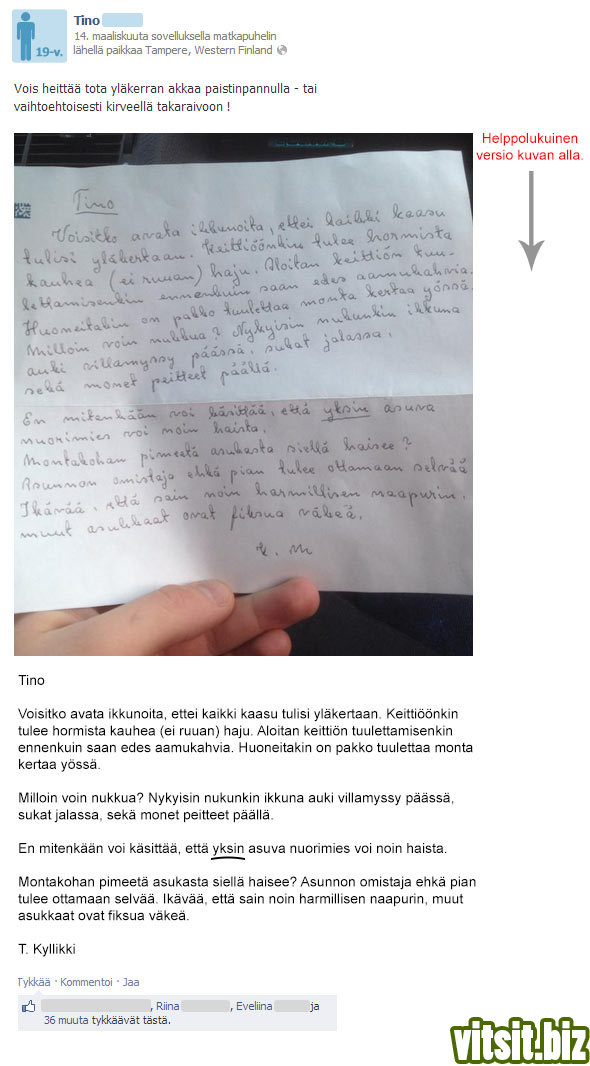 Tino
19-v.
14. maaliskuuta sovelluksella matkapuhelin
lähellä paikkaa Tampere, Western Finland
Vois heittää tota yläkerran akkaa paistinpannulla - tai
vaihtoehtoisesti kirveellä takaraivoon !
Helppolukuinen
versio kuvan alla.
Tino
Voisitko avata ikkunoita, ettei kaikki kaasu
tulisi yläkertaan. Keittiöönkin tulee hormista
kauhea (ei ruuan) haju. Aloitan keittiön tuu-
lettamisenkin ennenkuin saan edes aamukahvia.
Huoneitakin on pakko tuulettaa monta kertaa yössä.
Milloin voin nukkua? Nykyisin nukunkin ikkuna
auki villamyssy päässä, sukat jalassa,
sekä monet peitteet päällä.
En mitenkään voi käsittää, että yksin asuva
nuorimies voi noin haista.
Montakohan pimeetä asukasta siellä haisee?
Asunnon omistaja ehkä pian tulee ottamaan selvää
Ikävää, että sain noin harmillisen naapurin,
muut asukkaat ovat fiksua väkeä.
K. M
Tino
Voisitko avata ikkunoita, ettei kaikki kaasu tulisi yläkertaan. Keittiöönkin
tulee hormista kauhea (ei ruuan) haju. Aloitan keittiön tuulettamisenkin
ennenkuin saan edes aamukahvia. Huoneitakin on pakko tuulettaa monta
kertaa yössä.
Milloin voin nukkua? Nykyisin nukunkin ikkuna auki villamyssy päässä,
sukat jalassa, sekä monet peitteet päällä.
En mitenkään voi käsittää, että yksin asuva nuorimies voi noin haista.
Montakohan pimeetä asukasta siellä haisee? Asunnon omistaja ehkä pian
tulee ottamaan selvää. Ikävää, että sain noin harmillisen naapurin, muut
asukkaat ovat fiksua väkeä.
T. Kyllikki
Tykkää · Kommentoi · Jaa
, Riina , Eveliina ja
36 muuta tykkäävät tästä.
vitsit.biz